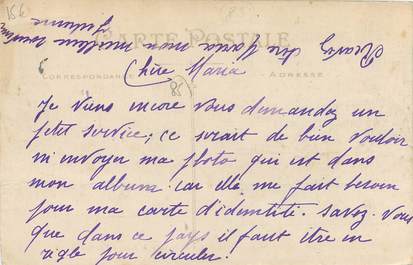 15€
CARTE POSTALE
CORRESPONDANCE
ADRESSE
Chère Maria
Je viens encore vous demandez un
petit service; ce serait de bien vouloir
m envoyer ma photo qui est dans
mon album. car elle me fait besoin
pour ma carte d'identité. Savez. Vous
que dans ce pays il faut être en
règle pour circuler.
Recevez chère Maria mon meilleur